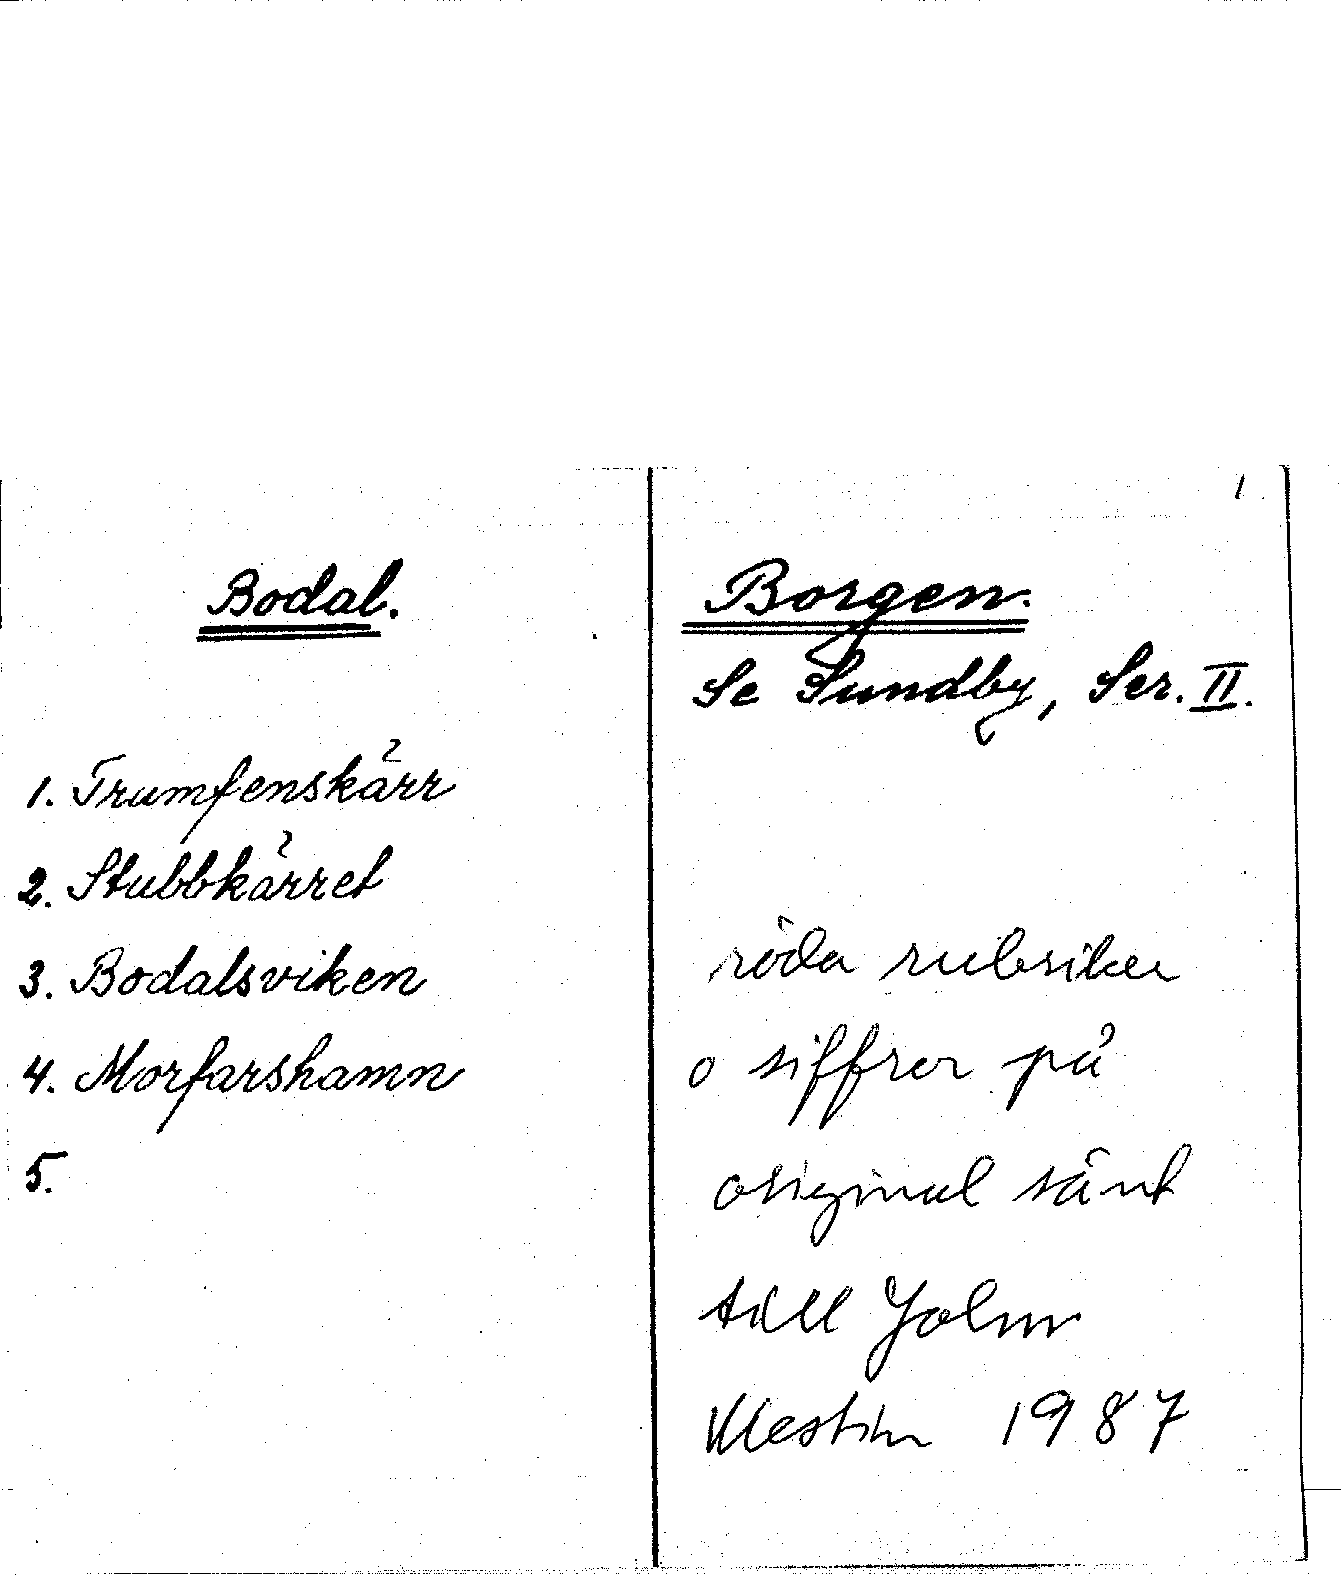 Bodal.
1. Trumfenskärr
2. Stubbkärret
3. Bodalsviken
4. Morfarshamn
5.
1
Borgen.
Se Sundby, Ser. II.
röda rubriker
o siffror på
original sänt
till John
Westin 1987